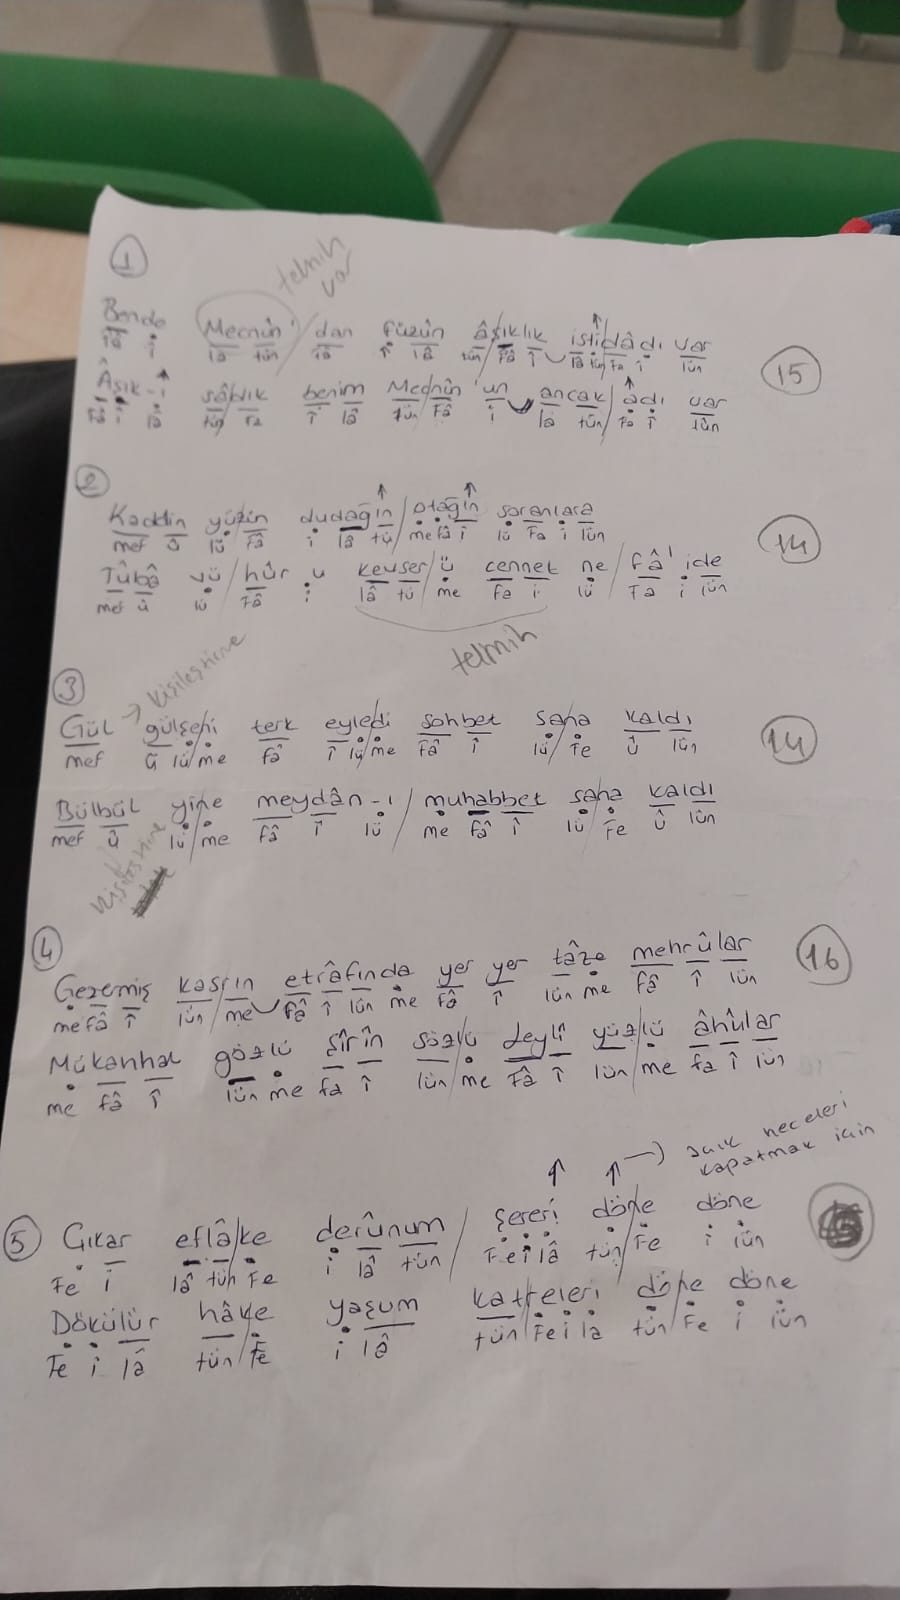 1
telmih
var
Bende Mecnûn'/dan füzûn âşıklık istidâdı var
fâ i lâ tün fâ i lâ tün/fâ î lâ tün/fa i lün
15
Âşık-ı sâdık benim Mecnûn'un ancak/adı var
fâ i lâ tün/fa î lâ tün/fâ i lâ tün/fa î lün
2
Kaddin yüzin dudağın/otağin soranlara
mef û lü/fâ i lâ tü/me fâ î lü fa i lün
14
Tûbâ vü/hûr u kevser/ü cennet ne/fâ'ide
mef û lü fâ i lâ tü/me fa i lü fa i lün
telmih
3
→ kişileştirme
Gül gülşeni terk eyledi sohbet saña kaldı
mef û lü/me fâ î lü/me fâ î lü/fe û lün
14
Bülbül yine meydân-ı/muhabbet saña kaldı
mef û lü/me fâ î lü me fâ î lü/fe û lün
kişileştirme
4
Gezemiş kasrın etrâfında yer yer tâze mehrûlar
me fâ î lün/me fâ î lün me fâ î lün me fâ î lün
16
Mükanhal gözlü şîrîn sözlü Leylî yüzlü âhûlar
me fâ î lün me fa î lün/me fâ î lün/me fa î lün
→ açık heceleri
kapatmak için
5
Çıkar eflâke derûnum/şereri döne döne
Fe i lâ tün Fe i lâ tün/Fe i lâ tün/Fe i lün
Dökülür hâke yaşum katreleri döne döne
Fe i lâ tün/Fe i lâ tün/Fe i lâ tün/Fe i lün